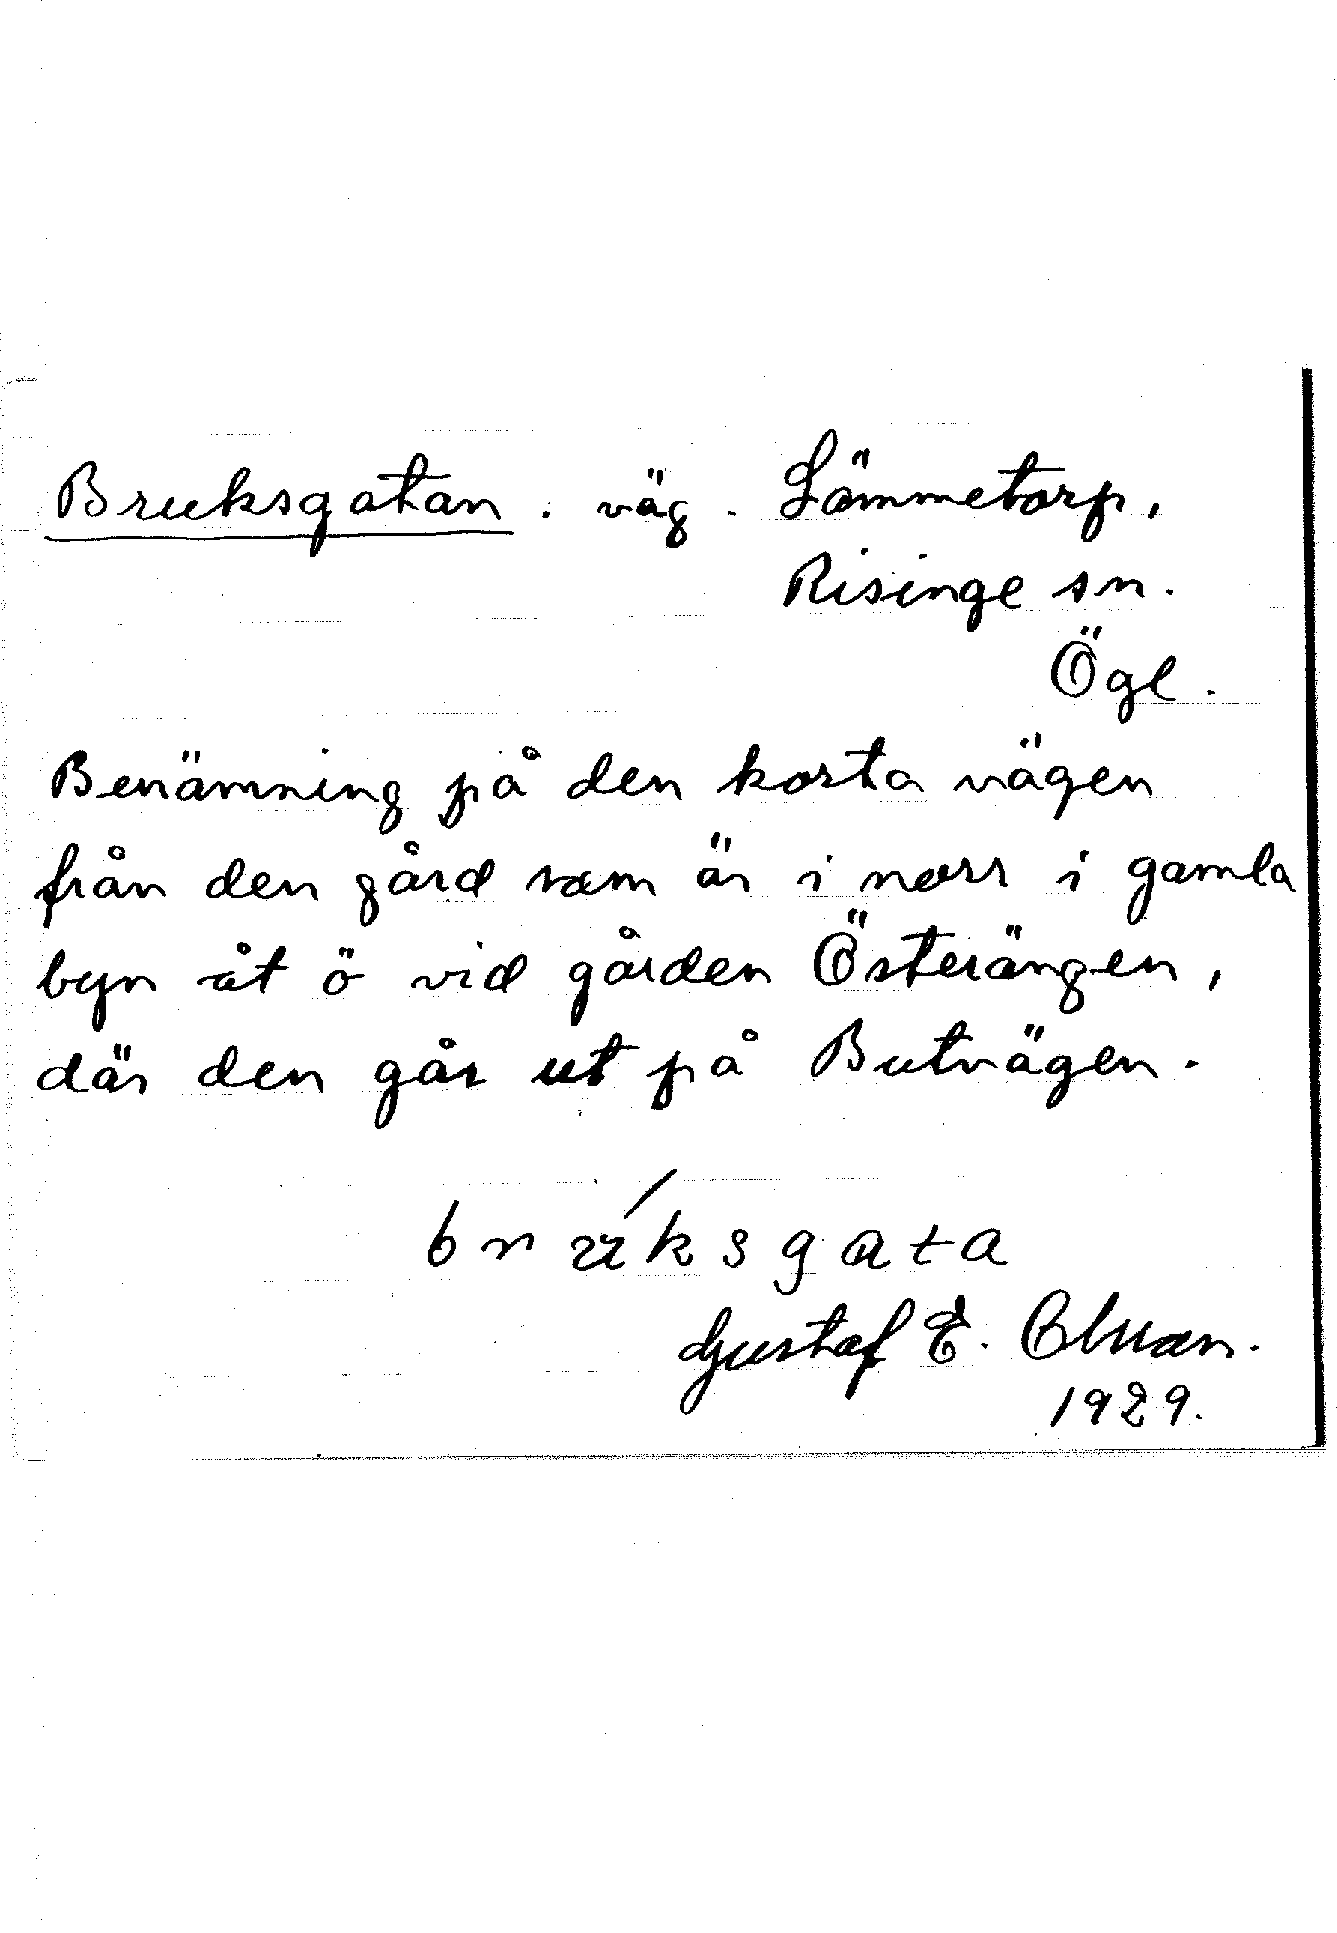 Bruksgatan . väg . Lämmetorp,
Risinge sn.
Ögl.
Benämning på den korta vägen
från den gård som är i norr i gamla
byn åt ö vid gården Österängen,
där den går ut på Butvägen.
brúksgata
Gustaf E. Olsson.
1929.